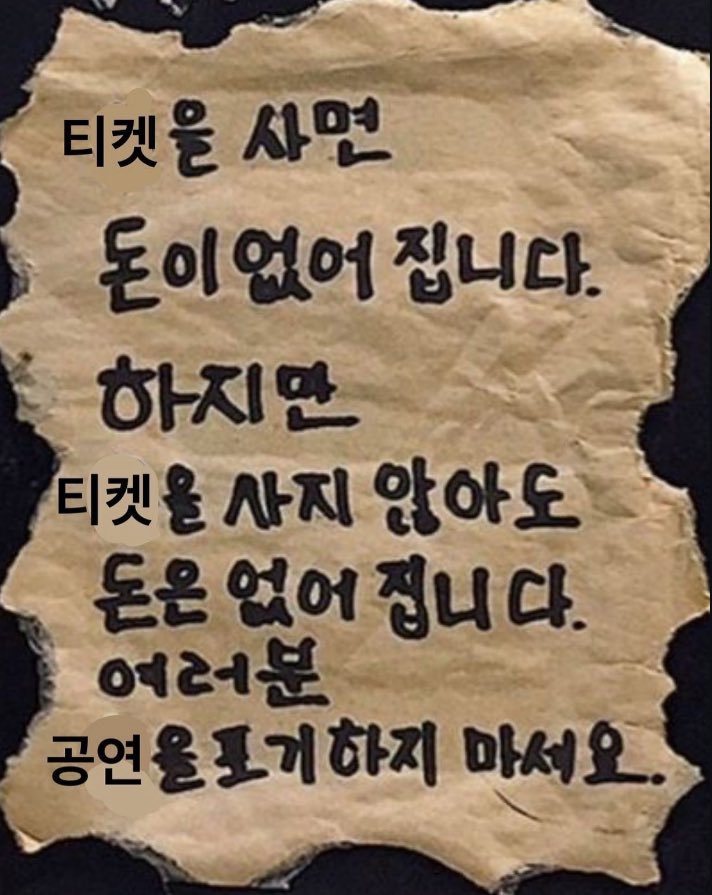 티켓을 사면
돈이 없어 집니다.
하지만
티켓을 사지 않아도
돈은 없어 집니다.
여러분
공연을 포기하지 마세요.